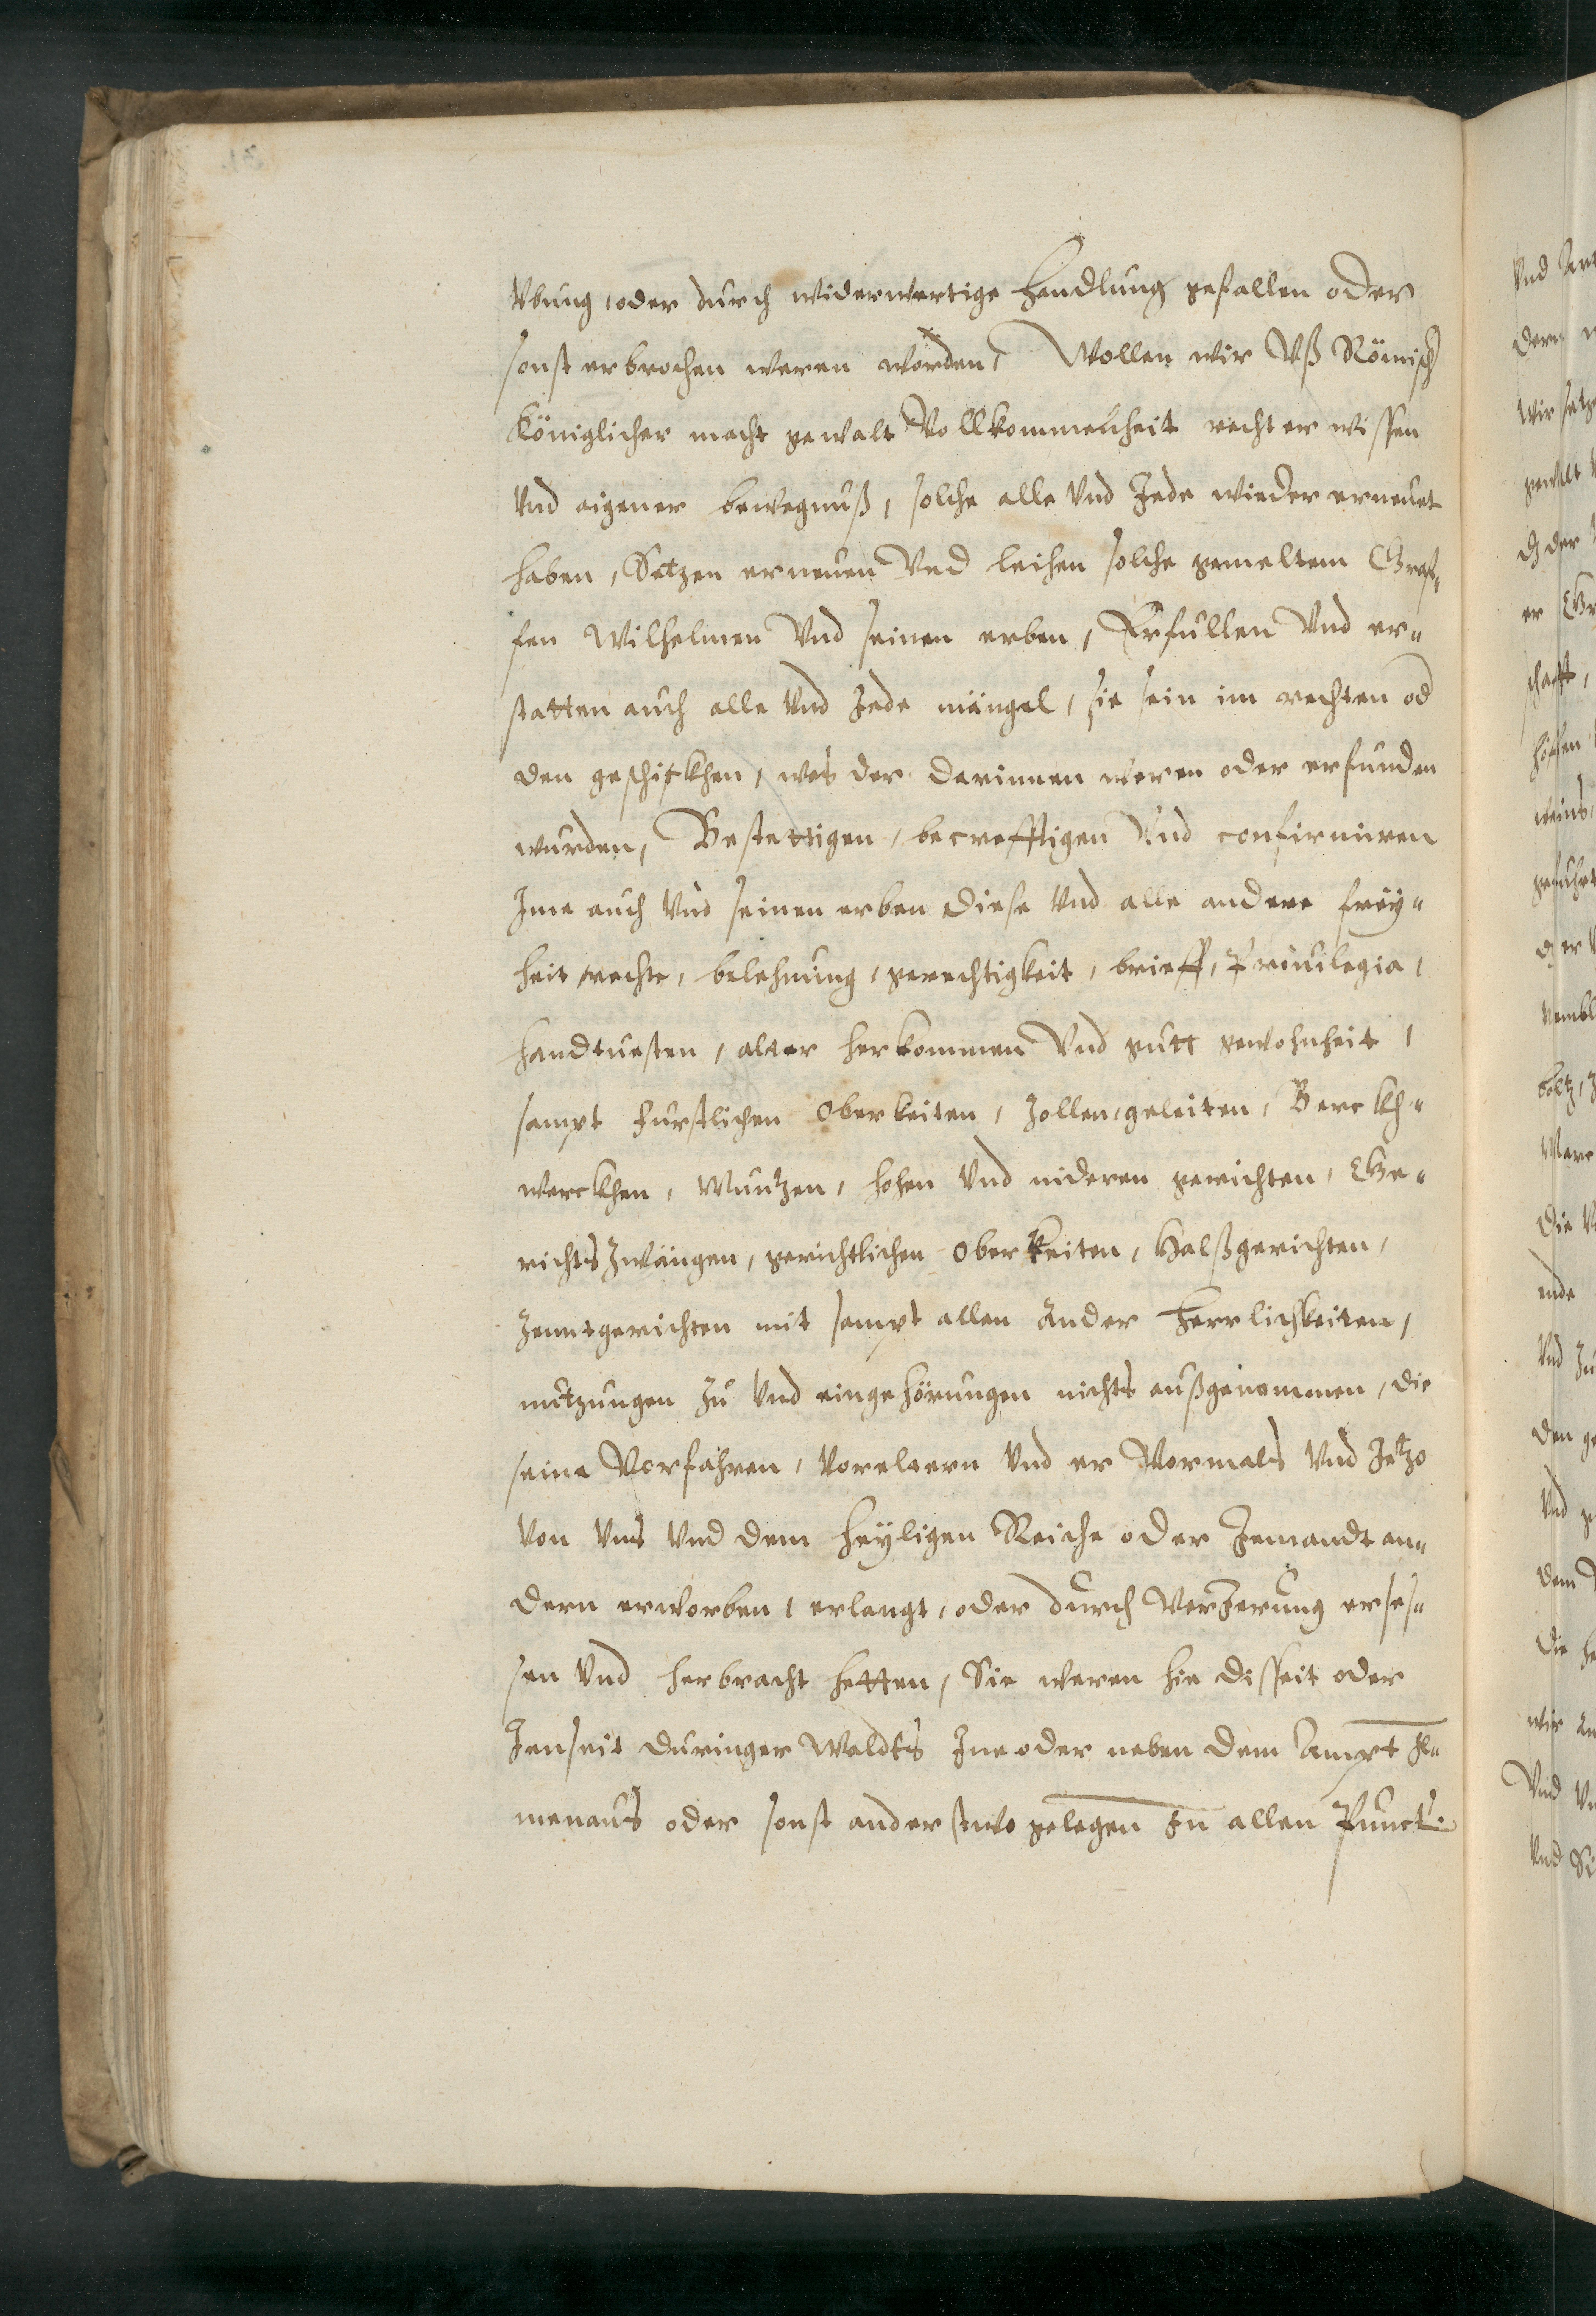 Vbung, oder durch widerwertige handlung gefallen oder
sonst erbrochen weren worden, Wollen wir Vß Römisch
Königlicher macht gewalt Vollkommenheit rechter wissen
Vnd eigener bewegnuß, solche alle Vnd Jede wieder erneuet
haben, Setzen erneuen Vnd leihen solche gemeltem Graf„
fen Wilhelmen Vnd seinen erben, Erfullen Vnd er„
statten auch alle Vnd Jede mängel, sie sein im rechten od
den geschickhen, was der darinnen weren oder erfunden
wurden, Bestettigen, becrefftigen Vnd confirmiren
Jme auch Vnd seinen erben diese Vnd alle andere frey„
heit, rechte, belehnung, gerechtigkeit, brieff, Priuilegia,
handtuesten, alter herkommen Vnd gutt gewohnheit,
sampt furstlichen Oberkeiten, Zollen, geleiten, Berckh„
werckhen, Muntzen, hohen Vnd nideren gerichten, Ge„
richts Zwängen, gerichtlichen Oberkeiten, Halßgerichten,
Zenntgerichten mit sampt allen Ander Herrlichkeiten,
nutzungen Zu Vnd eingehörungen nichts außgenommen, die
seine Vorfahren, Voreltern Vnd er Vormals Vnd Jetzo
Von Vns Vnd dem heyligen Reiche oder Jemandt an„
dern erworben, erlangt, oder durch Verjerung erses„
sen Vnd herbracht hetten, Sie weren hie disseit oder
Jenseit Duringer Waldts Jne oder neben dem Ampt Jl„
menaus oder sonst anderstwo gelegen Jn allen Punct.
Vnd